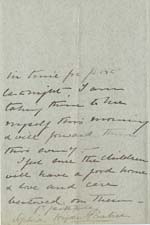 in time for post
last night. I am
taking them to
myself this morning
& will forward them
this even'g.
I feel sure the children
will have a good home
& love and care
bestowed on them —